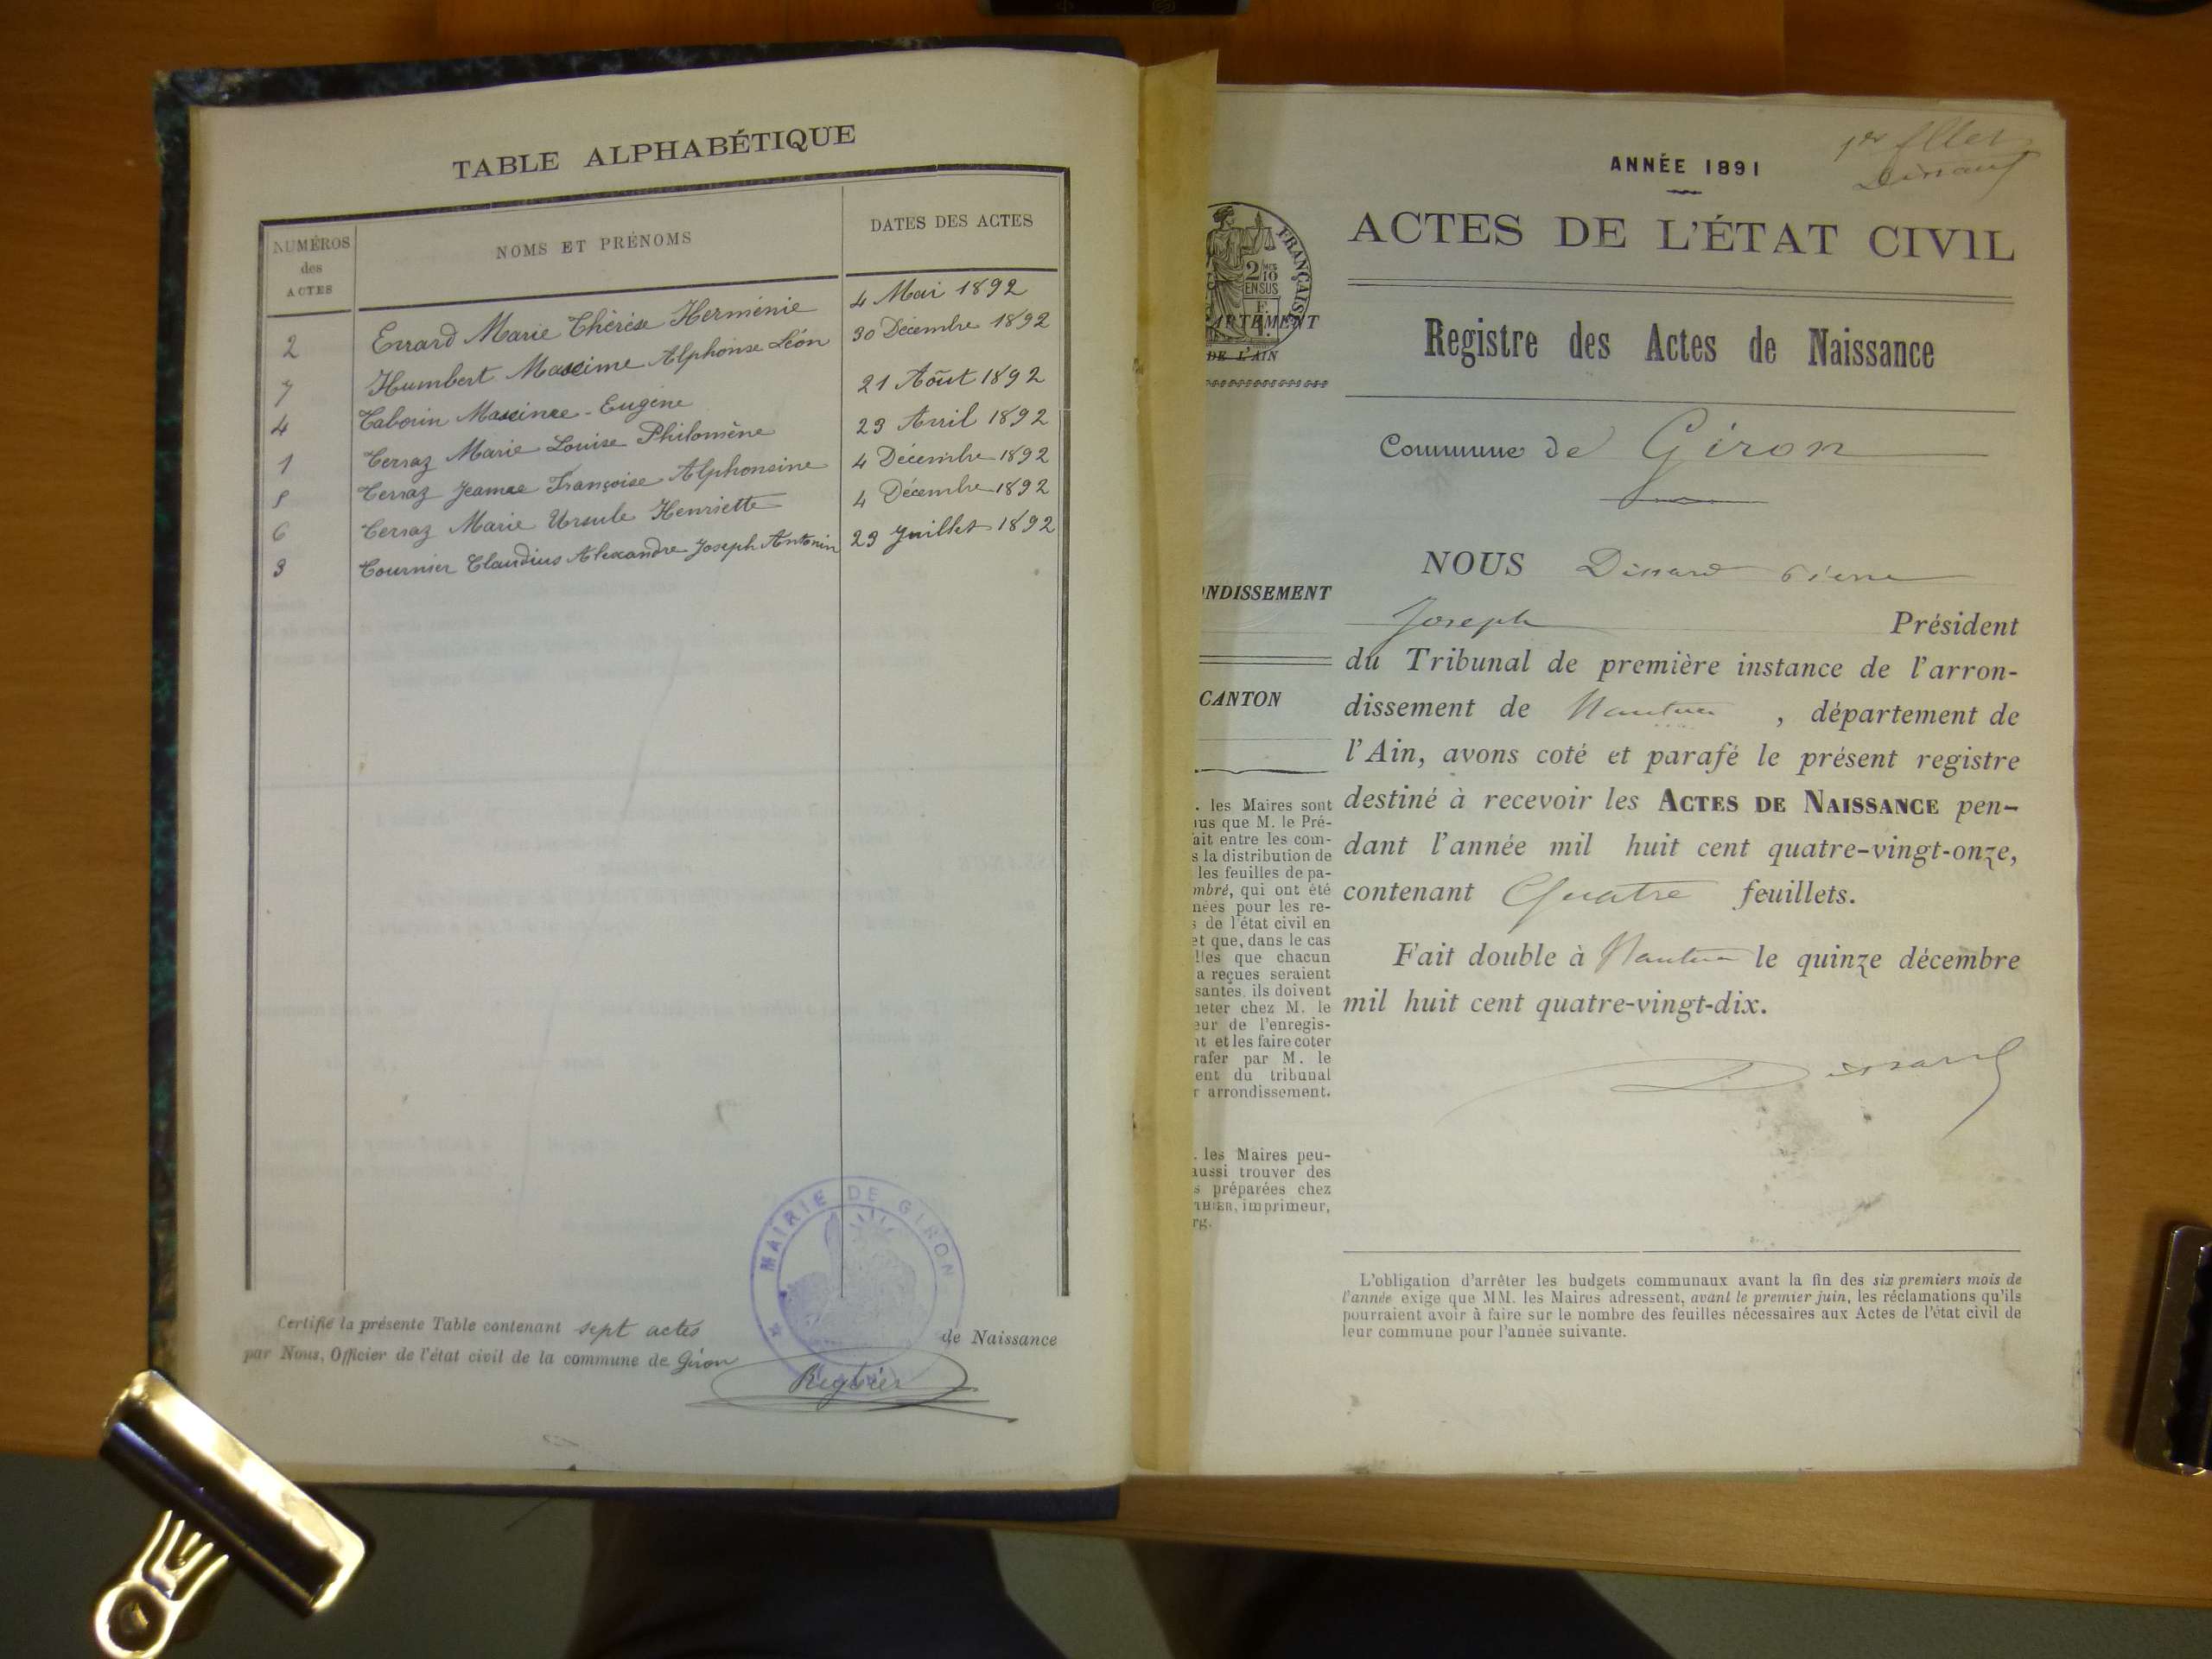 TABLE ALPHABÉTIQUE
NUMÉROS des ACTES
NOMS ET PRÉNOMS
DATES DES ACTES
2 Errard Marie Thérèse Herménie 4 Mai 1892
7 Humbert Maxime Alphonse Léon 30 Décembre 1892
4 Tabourin Maxime - Eugène 21 Août 1892
1 Terraz Marie Louise Philomène 23 Avril 1892
5 Terraz Jeanne Françoise Alphonsine 4 Décembre 1892
6 Terraz Marie Ursule Henriette 4 Décembre 1892
3 Tournier Claudius Alexandre Joseph Antonin 23 Juillet 1892
MAIRIE DE GIRON
Certifié la présente Table contenant sept actes de Naissance
par Nous, Officier de l'état civil de la commune de Giron
1er
ANNÉE 1891
ACTES DE L'ÉTAT CIVIL
FRANÇAISE
2/10
EN SUS
ARTEMENT
DE L'AIN
Registre des Actes de Naissance
Commune de Giron
NOUS
NDISSEMENT
Joseph Président
du Tribunal de première instance de l'arron-
CANTON
dissement de Nantua, département de
l'Ain, avons coté et parafé le présent registre
destiné à recevoir les ACTES DE NAISSANCE pen-
dant l'année mil huit cent quatre-vingt-onze,
contenant Quatre feuillets.
Fait double à Nantua le quinze décembre
mil huit cent quatre-vingt-dix.
. les Maires sont
us que M. le Pré-
ait entre les com-
s la distribution de
les feuilles de pa-
mbré, qui ont été
nées pour les re-
s de l'état civil en
et que, dans le cas
lles que chacun
a reçues seraient
santes, ils doivent
heter chez M. le
eur de l'enregis-
nt et les faire coter
rafer par M. le
ent du tribunal
r arrondissement.
. les Maires peu-
aussi trouver des
s préparées chez
THIER, imprimeur,
rg.
L'obligation d'arrêter les budgets communaux avant la fin des six premiers mois de
l'année exige que MM. les Maires adressent, avant le premier juin, les réclamations qu'ils
pourraient avoir à faire sur le nombre des feuilles nécessaires aux Actes de l'état civil de
leur commune pour l'année suivante.